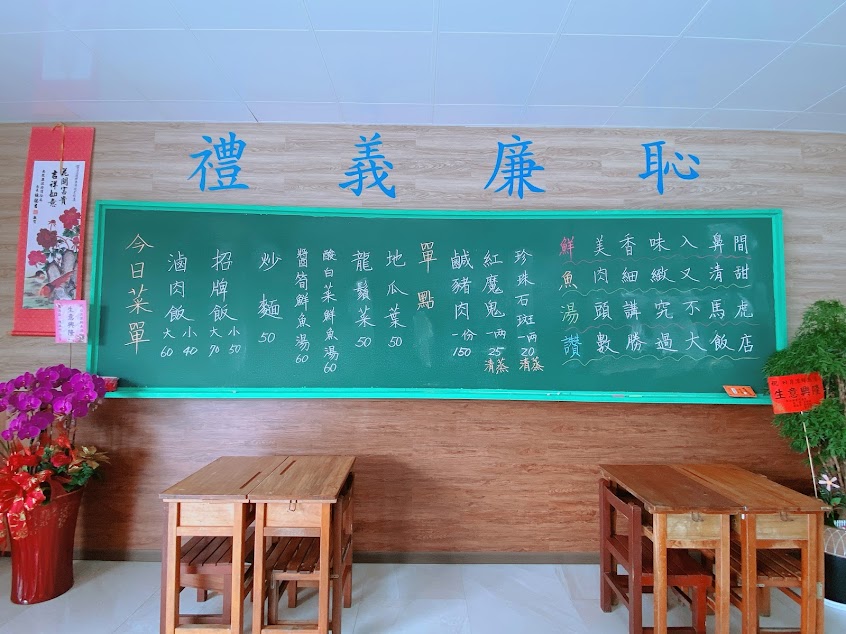 禮 義 廉 恥
花開富貴
吉祥如意
生意興隆
今日菜單
滷肉飯 大60 小40
招牌飯 大70 小50
炒麵 50
醬筍鮮魚湯 60
酸白菜鮮魚湯 60
龍鬚菜 50
地瓜葉 50
單點
鹹豬肉 一份 150
紅魔鬼 一兩 25 清蒸
珍珠石斑 一兩 20 清蒸
鮮魚湯讚
美香味入鼻間
肉細緻又清甜
頭講究不馬虎
數勝過大飯店
生意興隆